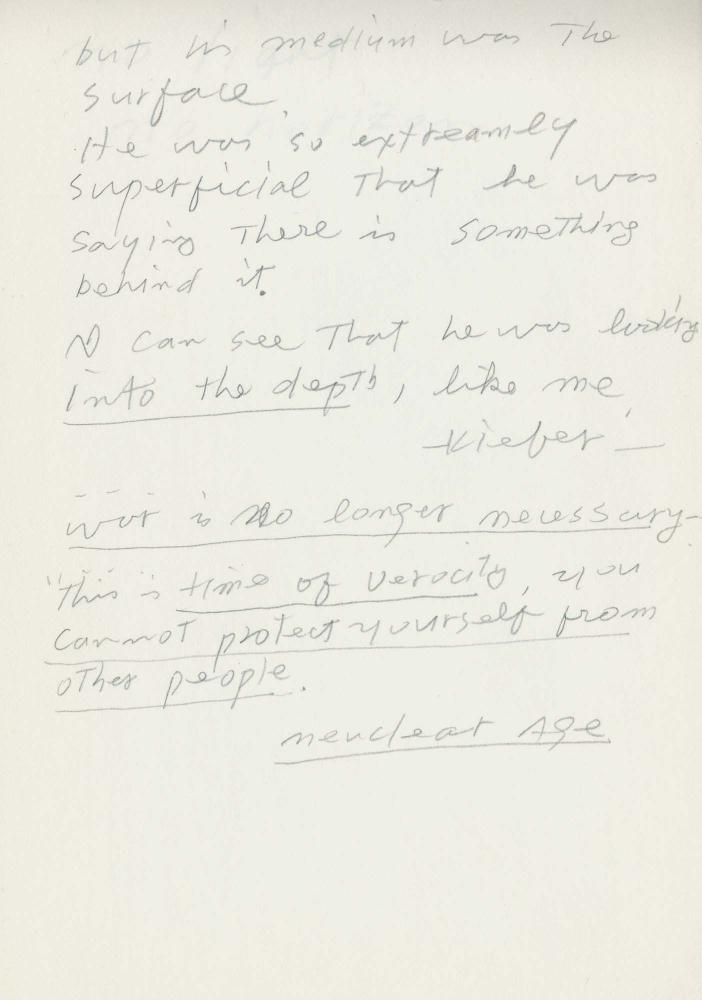 but his medium was The
surface.
He was so extreamely
superficial That he was
saying There is something
behind it.
I can see That he was looking
into the depth, like me,
- Kiefer -
war is no longer necessary-
"This is time of verocity, you
cannot protect yourself from
other people.
neuclear Age